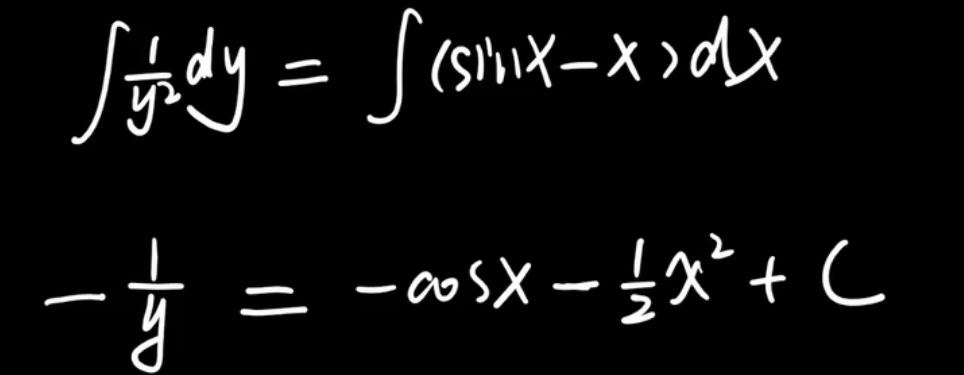 ∫ 1/y² dy = ∫ (sinx - x) dx
- 1/y = - cosx - 1/2 x² + C